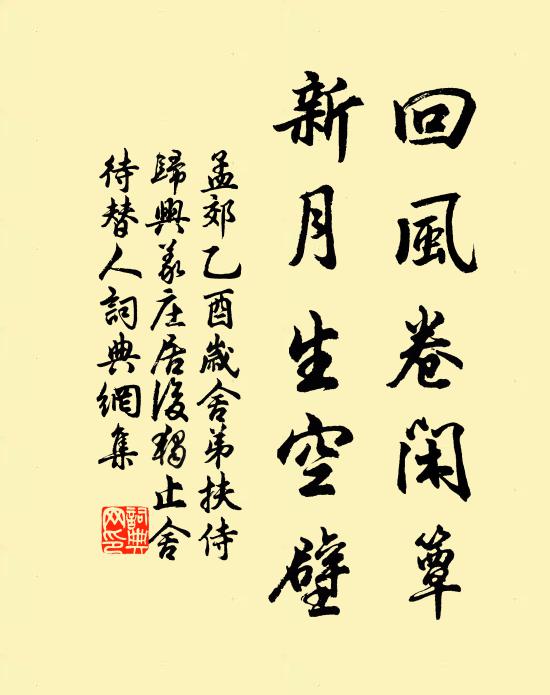 回風卷閑簟
新月生空壁
孟郊乙酉歲舍弟扶侍
歸興義莊居後獨止舍
待替人詞典網集
詞典網印